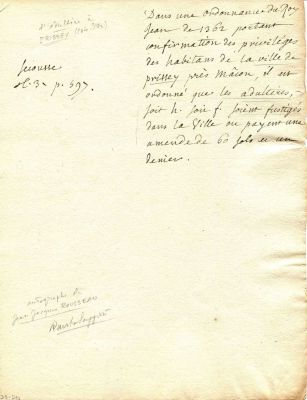 d'adultère à
PRISSEY
Secousse
t. 3. p. 597.
Dans une ordonnance du Roy
Jean de 1362 portant
confirmation des privilèges
des habitans de la ville de
prissey près Mâcon, il est
ordonné que les adultères,
soit h. soit f. soient fustigés
dans la Ville ou payent une
amende de 60 sols et un
denier.
autographe de
Jean Jacques ROUSSEAU